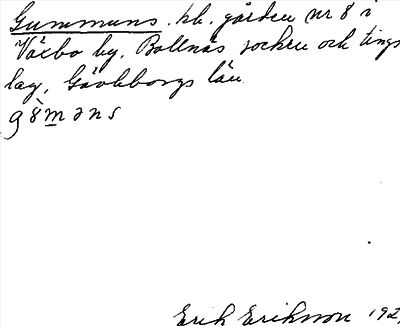 Gummuns. hh. gården nr 8 i
Växbo by, Bollnäs socken och tings
lag, Gävleborgs län
göməns
Erik Erikson 192